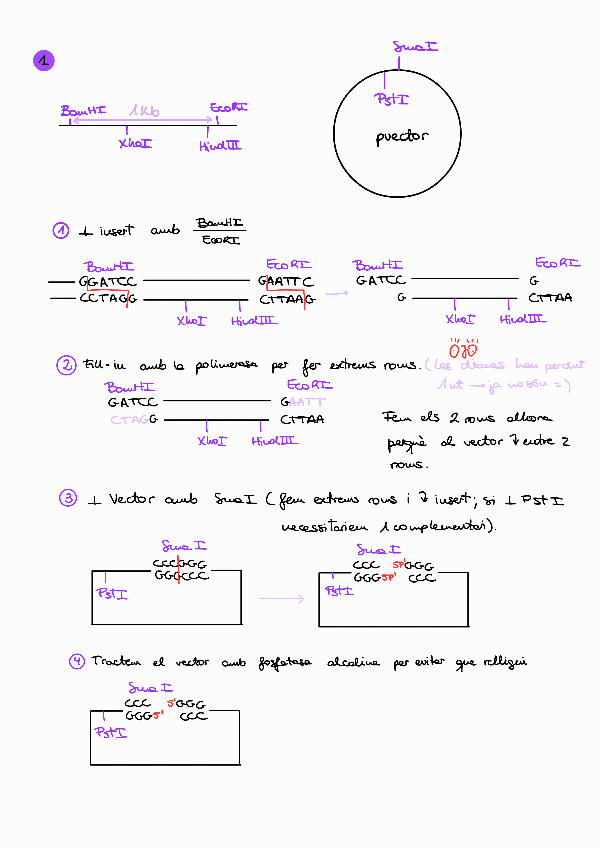 1
SmaI
BamHI 1Kb EcoRI
PstI
XhoI HindIII
pvector
1 ⊥ insert amb BamHI
EcoRI
BamHI EcoRI BamHI EcoRI
GGATCC GAATTC GATCC G
CCTAGG CTTAAG → G CTTAA
XhoI HindIII XhoI HindIII
OJO
2 Fill-in amb la polimerasa per fer extrems roms. (Les dianes han perdut
1 nt → ja no són =)
BamHI EcoRI
GATCC GAATT
CTAGG CTTAA
XhoI HindIII
Fem els 2 roms alhora
perquè al vector ↓ entre 2
roms.
3 ⊥ Vector amb SmaI (fem extrems roms i ↓ insert; si ⊥ PstI
necessitariem 1 complementari).
SmaI SmaI
CCCGGG CCC 5P'GGG
GGGCCC GGG5P' CCC
PstI → PstI
4 Tractem el vector amb fosfatasa alcalina per evitar que relligui
SmaI
CCC 5'GGG
GGG5' CCC
PstI